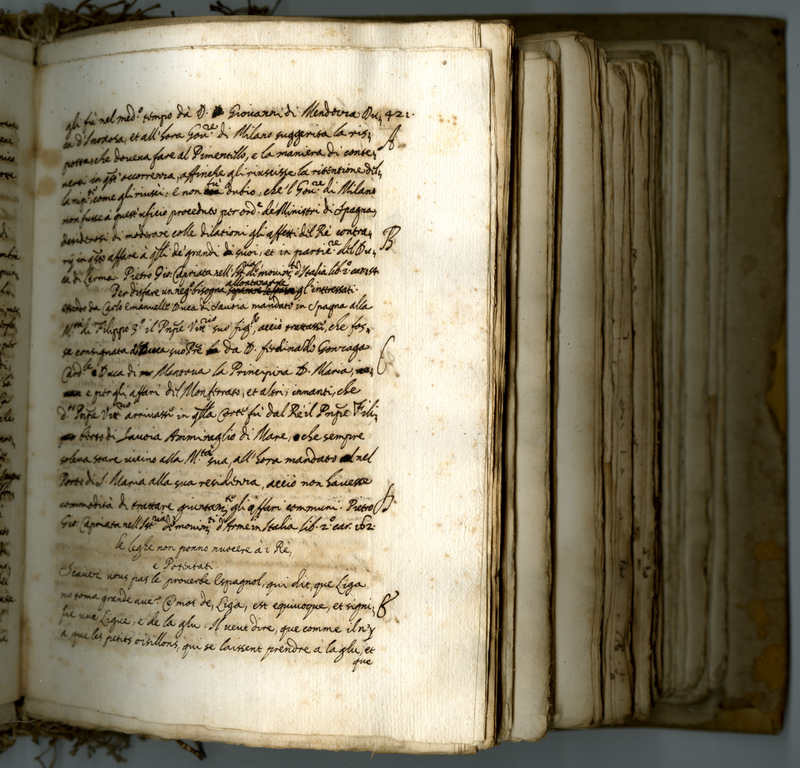 gli fù nel med.º tempo dà D. Giovanni di Mendozza Du, 421.
ca d'Inoiosa, et all'hora Gov.re di Milano suggerita la ris, A
posta che doveva fare al Pimentillo, e la maniera di conte,
nersi in q.sta occorrenza, affinche gli riuscisse la ritentione del,
la nip.te, come gli riuscì: e non dubio, che 'l Gov.re di Milano
non fusse à quest'uficio proceduto per ord.e de Ministri di Spagna,
desiderosi di moderare colle dilationi gli affetti del Rè contra, B
rij in q.sto affare à q.lli de' grandi suoi, et in partic.re del Du,
ca di Lerma. Pietro Gio: Capriata nell' di movim.ti d'Italia lib. 2.º
Per disfare un neg.º bisogna allontanarse gl'interessati.
da Carlo Emanuelle Duca di Savoia mandato in Spagna alla
M.tà di Filippo 3.º il Pn͠pe Vit.rio suo fig.lo, acciò trattasse, che fos,
se consignata suo P͠re da D. Ferdinando Gonzaga C
Card.le Duca di Mantova la Principina D. Maria,
e per gli affari del Monferrato, et altri; innanti, che
d.º Pn͠pe Vitt.º arrivasse in q.lla Corte fù dal Rè il Pn͠pe Fili,
berto di Savoia Ammiraglio di Mare, che sempre
soleva stare vicino alla M.tà sua, all'hora mandato nel
Porto di S. Maria alla sua residenza, acciò non havesse
commodità di trattare giuntam.te gli affari communi. Pietro D
Gio: Capriata nell' di movim.ti d'Arme in Italia lib. 2.º car. 162.
Le leghe non ponno nuocere à i Rè,
e Potentati.
Scavez vous pas le proverbe Espagnol, qui dit, que Liga
no toma grande ave? Ce mot de, Liga, est equivoque, et signi, E
fie une Ligue, e de la glu. Il veut dire, que comme il n'y
a que les petits oisillons, qui se laissent prendre à la glu, et
que